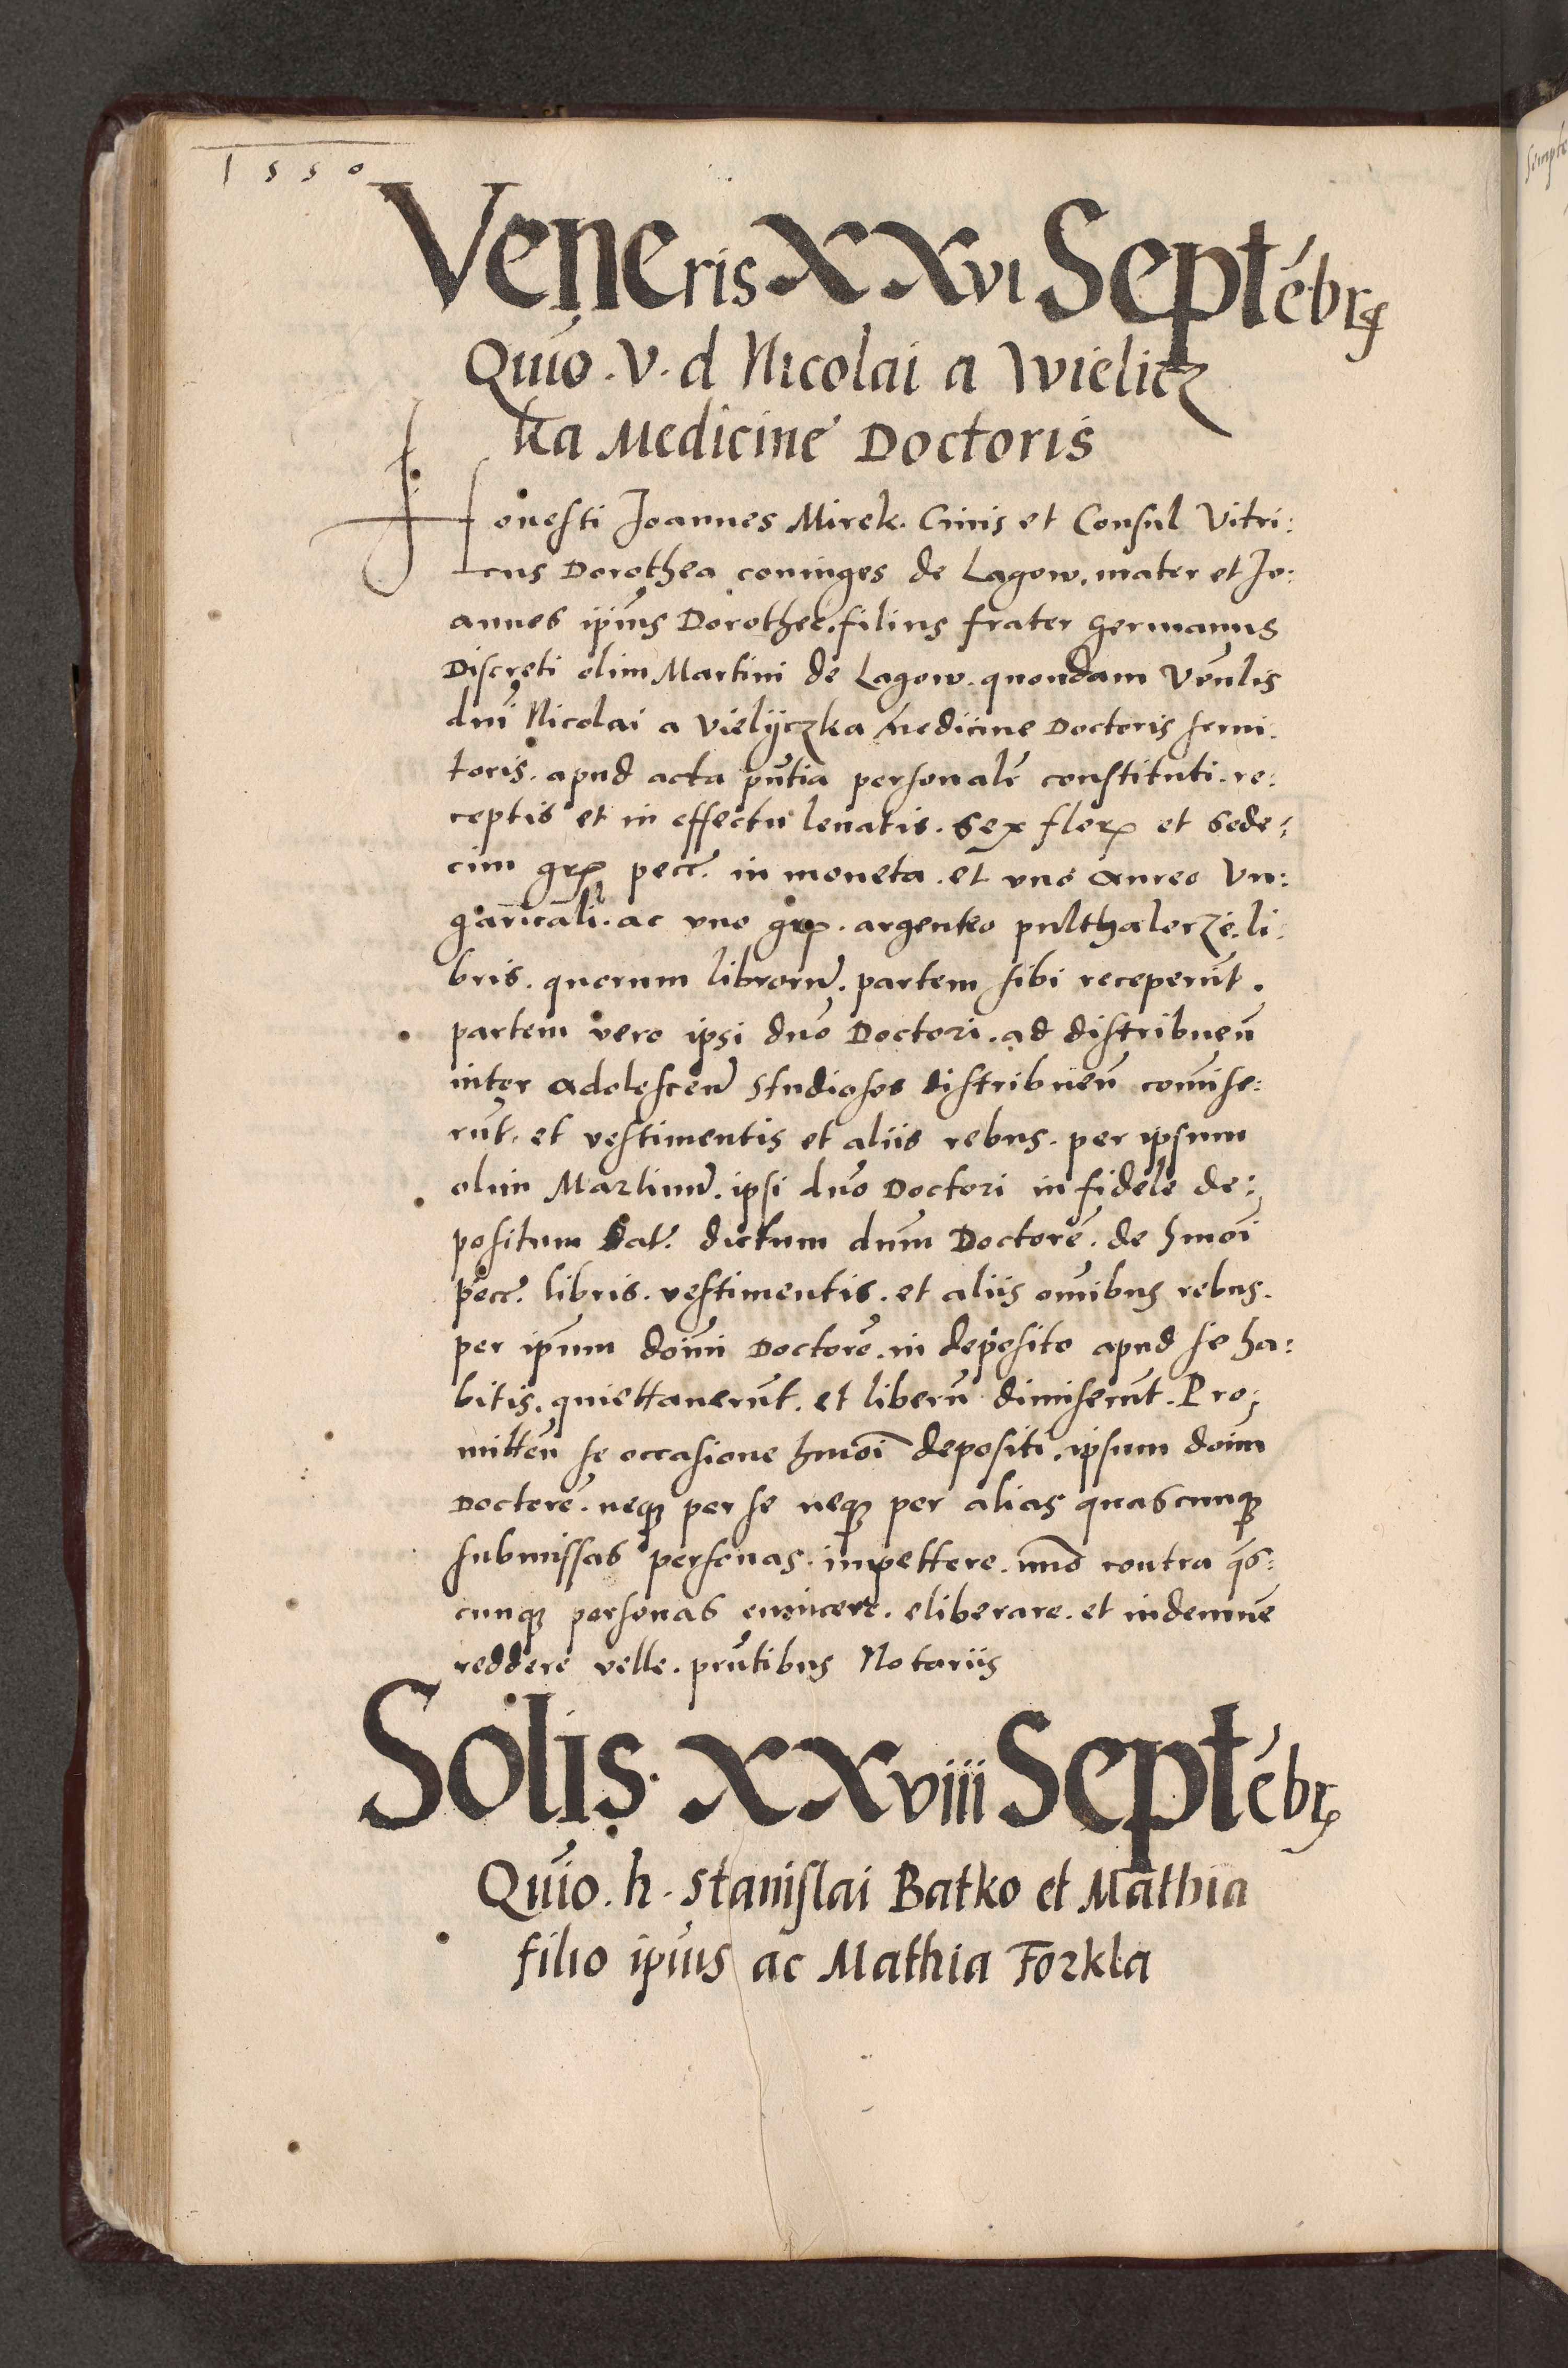 1550
Veneris XXvi Septẽbrꝭ
Quĩo. v. d Nicolai a Wielicz
ka Medicine Doctoris
Honesti Joannes Mirek. Ciuis et Consul Vitri:
cus Dorothea coniuges de Lagow. mater et Jo:
annes ipĩus Dorothee. filius frater germanus
Discreti olim Martini de Lagow. quondam Vẽnlis
dnĩ Nicolai a Vielijczka medicine Doctoris serui:
toris. apud acta pñtia personalr̃ constituti. re:
ceptis et in effectu leuatis. Sex florꝭ et Sede:
cim grꝭ pecc̃. in moneta. et vno aureo Vn:
garicali. ac vno grꝭ. argenteo pulthalerze. li:
bris. quorum librorũ. partem sibi receperũt.
partem vero ipsi dnõ Doctori. ad distribueñ
inter adolescen̄ studiosos distribueñ com̃ise:
rũt. et vestimentis et aliis rebus. per ipsum
olim Martinũ. ipsi dnõ Doctori in fidele de:
positum dat̃. dictum dnm̃ Doctorẽ. de hmõi
pecc̃. libris. vestimentis. et aliis om̃ibus rebus.
per ip̃um doim̃ Doctorẽ. in deposito apud se ha:
bitis. quiettauerũt. et liberũ dimiserũt. Pro:
mitteñ se occasione hmõi depositi. ipsum doim̃
Doctorẽ. neqꝫ per se neqꝫ per alias quascunqꝫ
submissas personas. impettere. im̃o contra q̃s:
cunqꝫ personas euincere. eliberare. et indemnẽ
reddere velle. prñtibus Notariis
Solis. XXviii Septẽbrꝭ
Quĩo. h. Stanislai Batko et Mathia
filio ipĩus ac Mathia Forkla